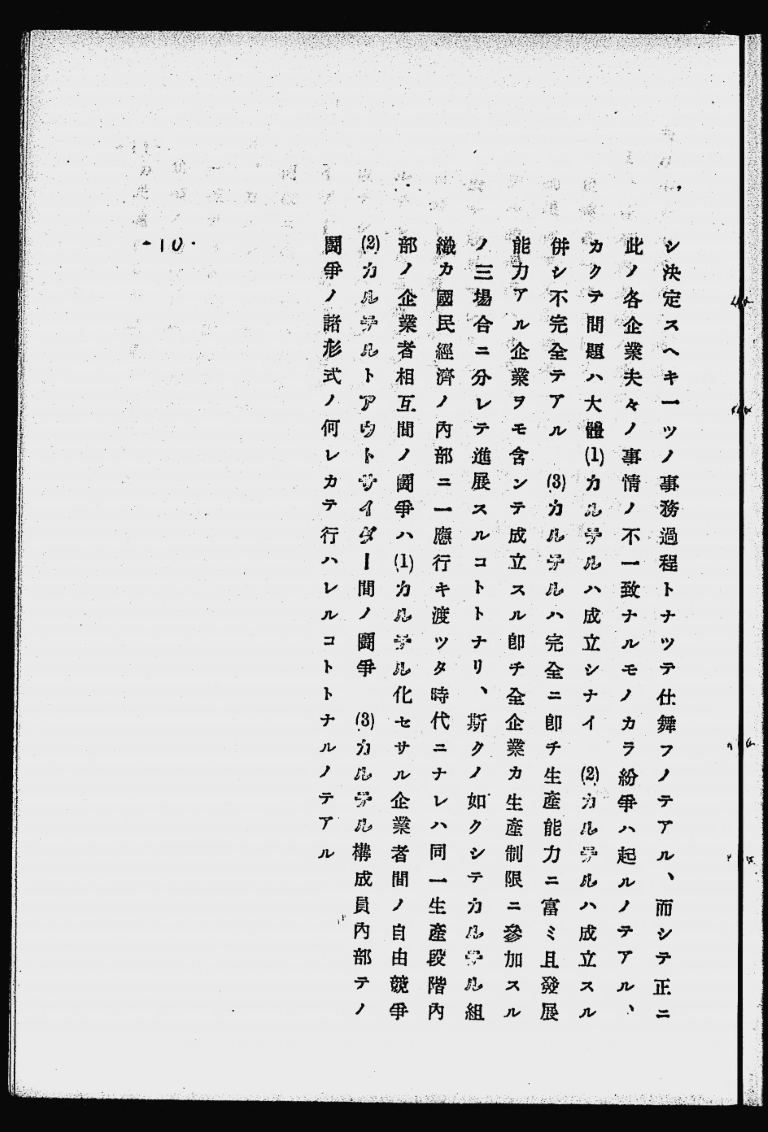 シ決定スヘキ一ツノ事務過程トナツテ仕舞フノテアル、而シテ正ニ
此ノ各企業夫々ノ事情ノ不一致ナルモノカラ紛爭ハ起ルノテアル、
カクテ問題ハ大體(1)カルテルハ成立シナイ (2)カルテルハ成立スル
併シ不完全テアル (3)カルテルハ完全ニ卽チ生產能力ニ富ミ且發展
能力アル企業ヲモ含ンテ成立スル卽チ全企業カ生產制限ニ參加スル
ノ三場合ニ分レテ進展スルコトトナリ、斯クノ如クシテカルテル組
織カ國民經濟ノ內部ニ一應行キ渡ツタ時代ニナレハ同一生產段階內
部ノ企業者相互間ノ鬪爭ハ(1)カルテル化セサル企業者間ノ自由競爭
(2)カルテルトアウトサイダー間ノ鬪爭 (3)カルテル構成員內部テノ
鬪爭ノ諸形式ノ何レカテ行ハレルコトトナルノテアル
-10-